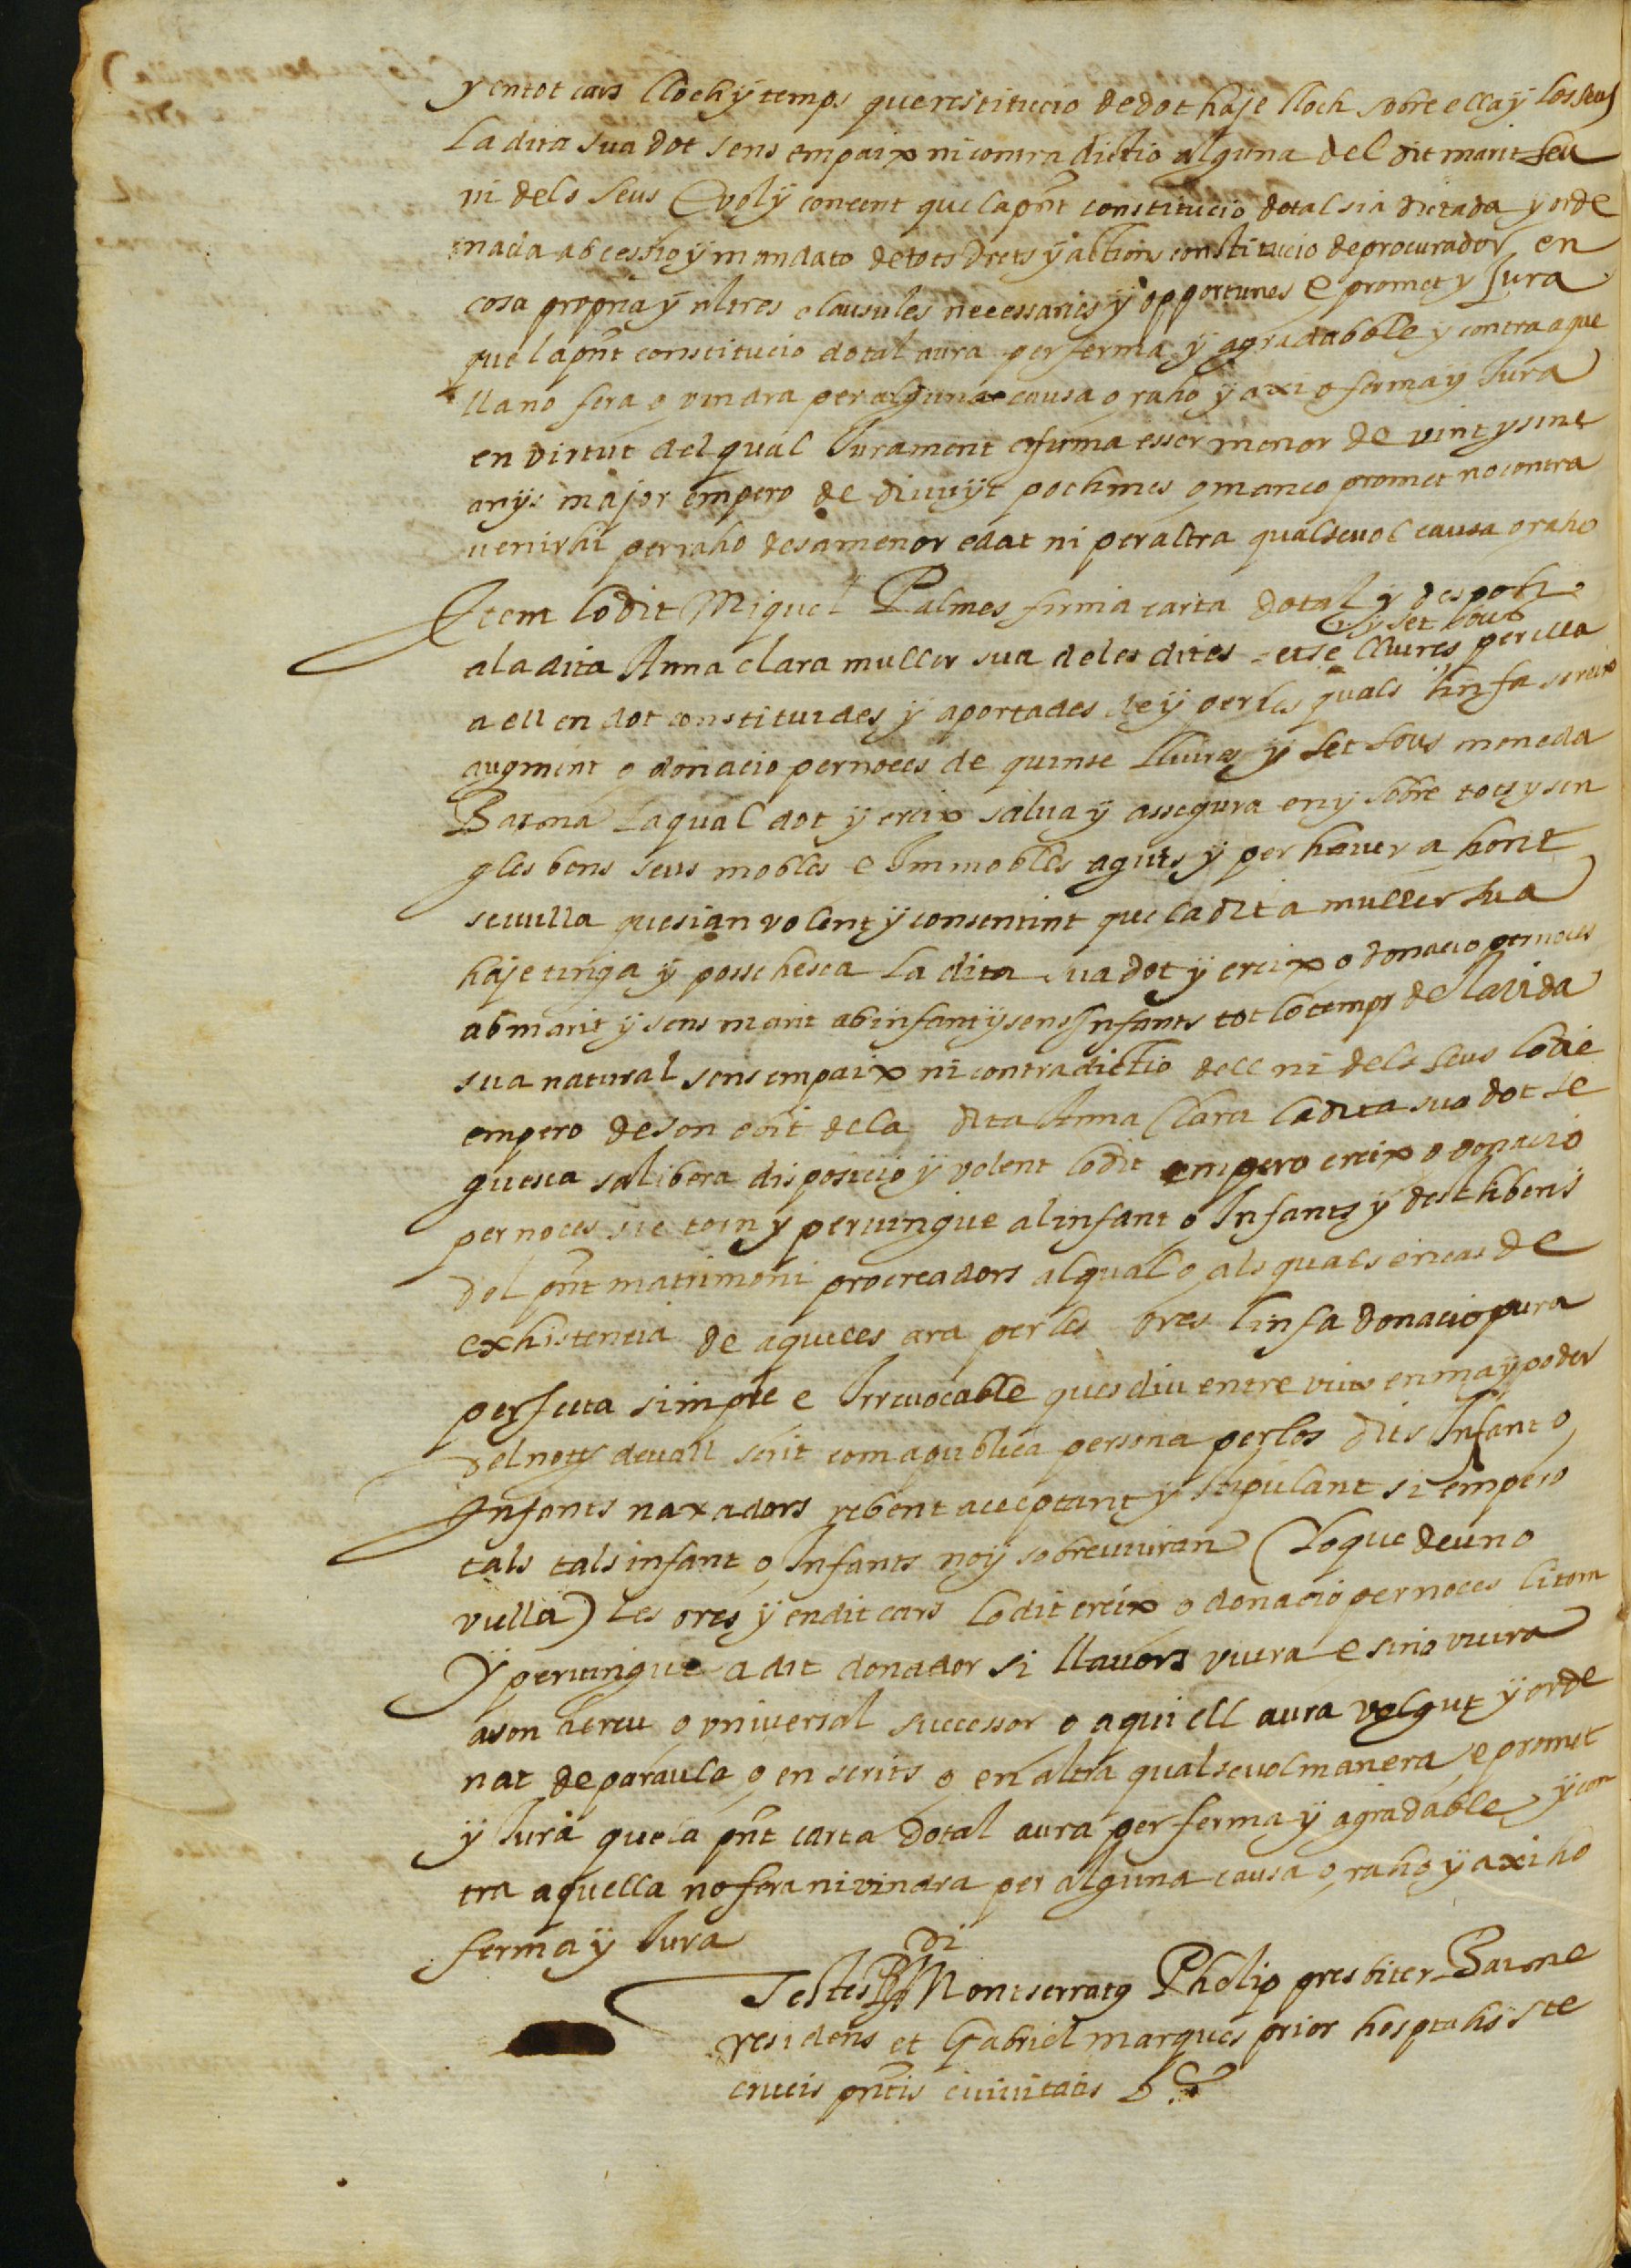 y entot cars lloch y temps que restitucio de dot haje lloch sobre ella y los seus
La dita sua dot sens empaix ni contradictio alguna del dit marit seu
ni dels seus E vol y concent que la pnt constitucio dotal sia dictada y orde
nada ab cessio y mandato de tots drets y actions constitucio de procurador en
cosa propria y altres clausules necessaries y opportunes e promet y Jura
que la pnt constitucio dotal aura per ferma y agradabble y contra aque
lla no fera o vindra per alguna causa o raho y axi o ferma y Jura
en virtut del qual Jurament afirma esser menor de vint y sinc
anys major empero de divuyt poch mes o manco promet no contra
venirhi per raho de sa menor edat ni per altra qualsevol causa o raho
Item lo dit Miquel Palmes firma carta dotal y despoli
y set sous
a la dita Anna clara muller sua de les dites lliures per ella
a ell en dot constituides y aportades de y per les quals lin fa screix
augment o donacio per noces de quinse lliures y set sous moneda
Barna La qual dot y creix salva y assegura en y sobre tots y sen
gles bens seus mobles e Immobles aguts y per haver a hont
sevulla que sian volent y consentint que la dita muller sua
haje tinga y possehesca La dita sua dot y creix o donacio per noces
ab marit y sens marit ab infants y sens Infants tot lo temps de la vida
sua natural sens empaix ni contradictio dell ni dels seus lo die
empero de son obit de la dita Anna Clara la dita sua dot se
guesca sa libera disposicio y volent lo dit empero creix o donacio
per noces sie torn y pervingue al infant o Infants y desthbens
del pnt matrimoni procreadors al qual o als quals en cas de
exhistencia de aquelles ara per les ores lin fa donacio pura
perfecta simple e Irrevocable ques diu entre vius en ma y poder
del noty devall scrit com a publica persona per los dits Infant o
Infants naxadors rebent acceptant y stipulant si empero
tals tals infant o Infants noy sobreviuran (lo que deu no
vulla) Les ores y en dit cars lo dit creix o donacio per noces li torn
Y pervingue a dit donador si llavors viura e sino viura
a son hereu o universal successor o a qui ell aura volgut y orde
nat de paraula o en scrits o en altra qualsevol manera e promet
y Jura que la pnt carta dotal aura per ferma y agradable y con
tra aquella no fera ni vindra per alguna causa o raho y axi ho
ferma y Jura
di
Testes Montserratus Pholip presbiter Barne
residens et Gabriel marques prior hospitalis Ste
crucis pntis civitatis